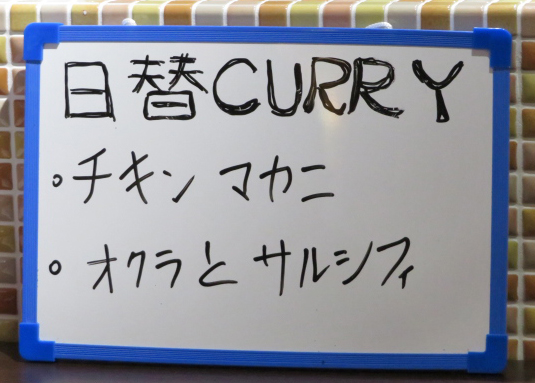 日替CURRY
・チキン マカニ
・オクラと サルシフィ